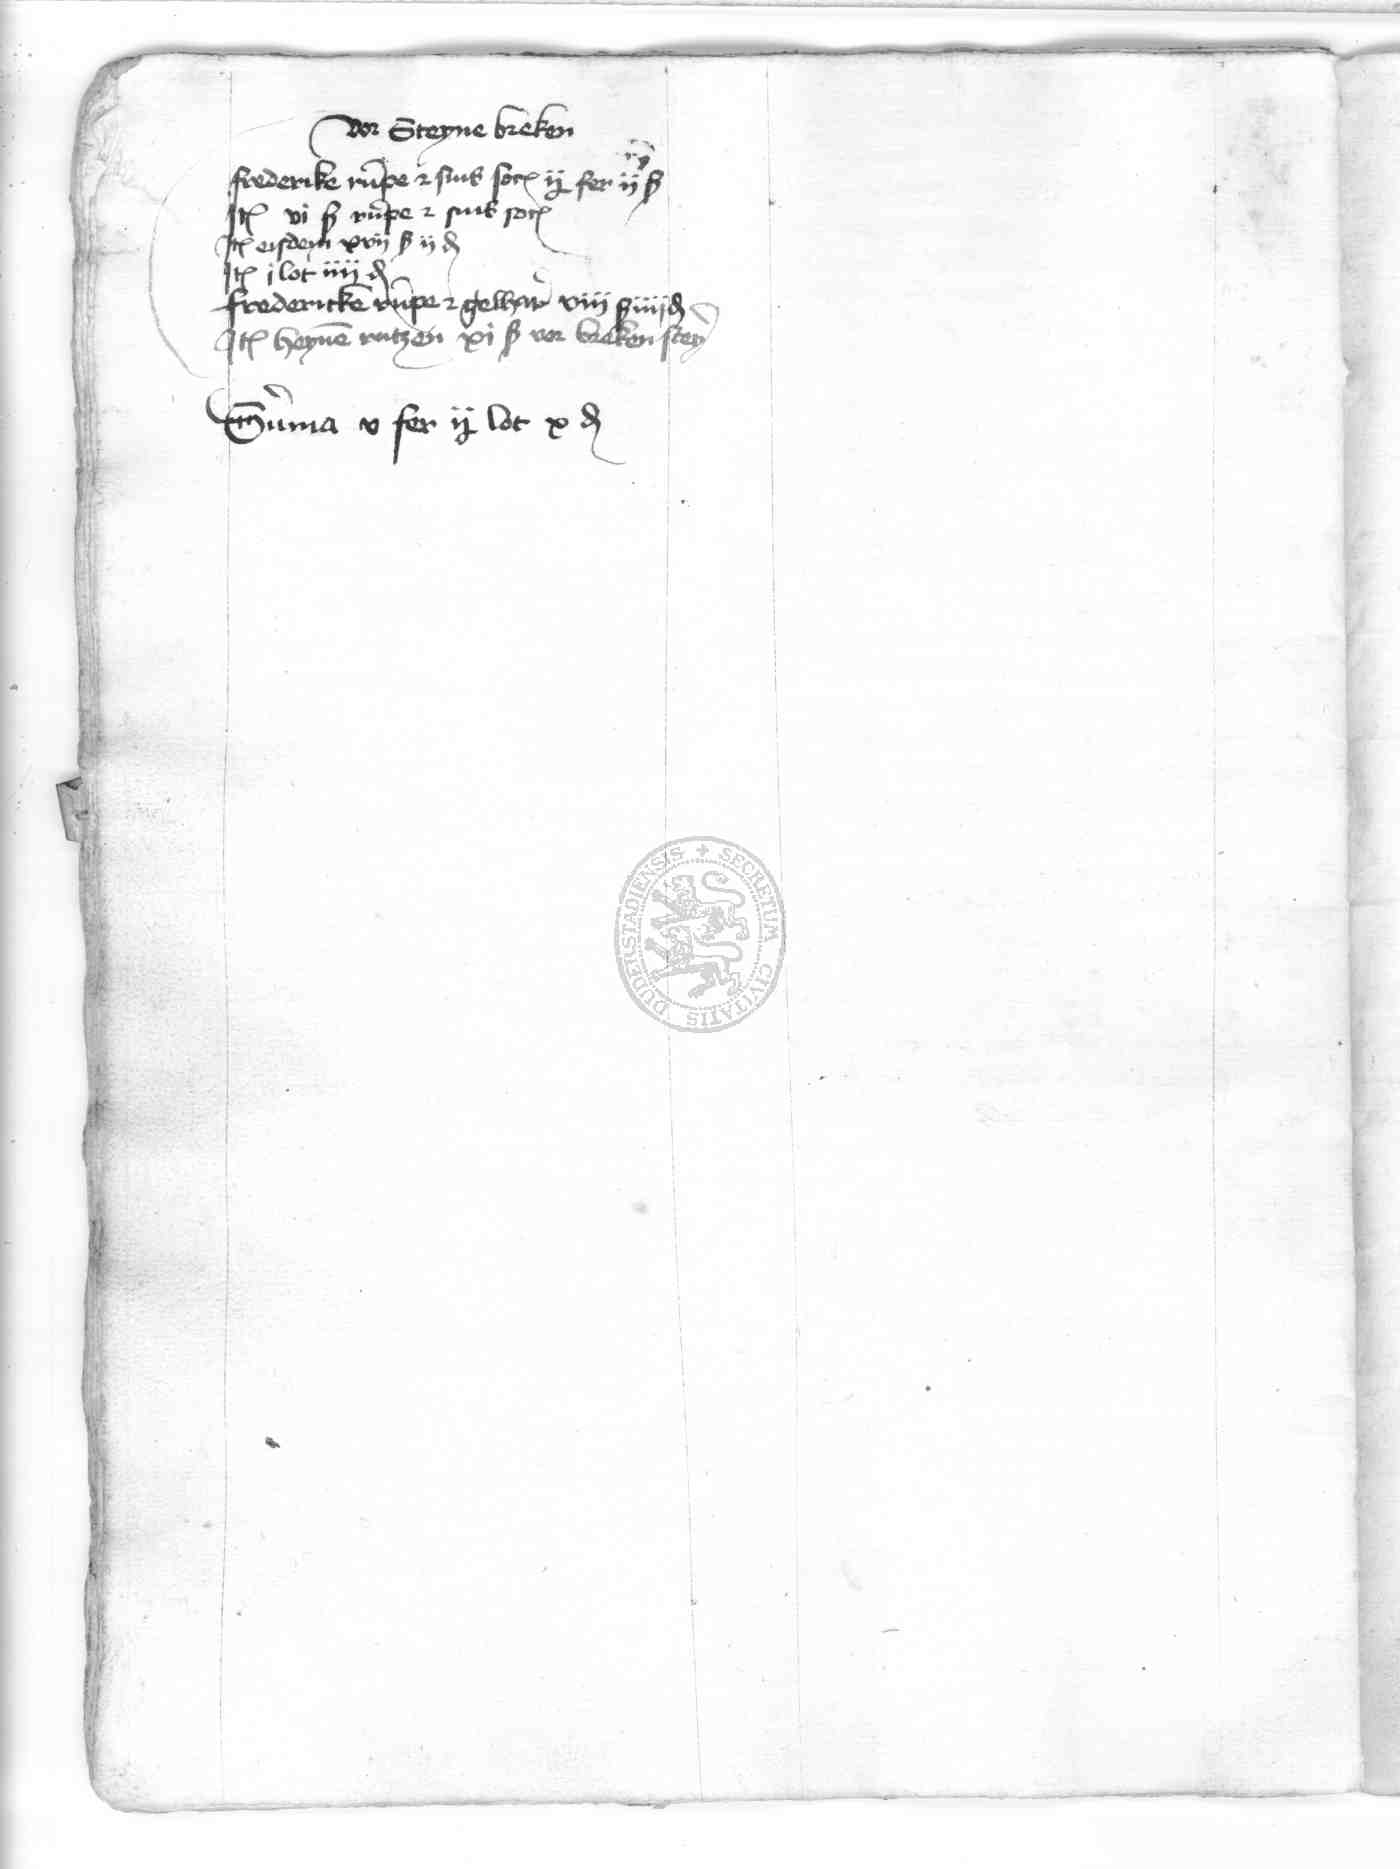 vor Steyne breken
frederike rūpe ⁊ suis soc̄ ij fer ij ß
It̄ vi ß rūpe ⁊ suis soc̄
It̄ eisdem xvij ß ij ₰
It̄ j lot iiij ₰
frederickē rūpe ⁊ gelhar viii ß iiij ₰
It̄ heynē rutzen xi ß vor breken stey
Sūma v fer ij lot x ₰
SECRETUM CIVITATIS DUDERSTADIENSIS